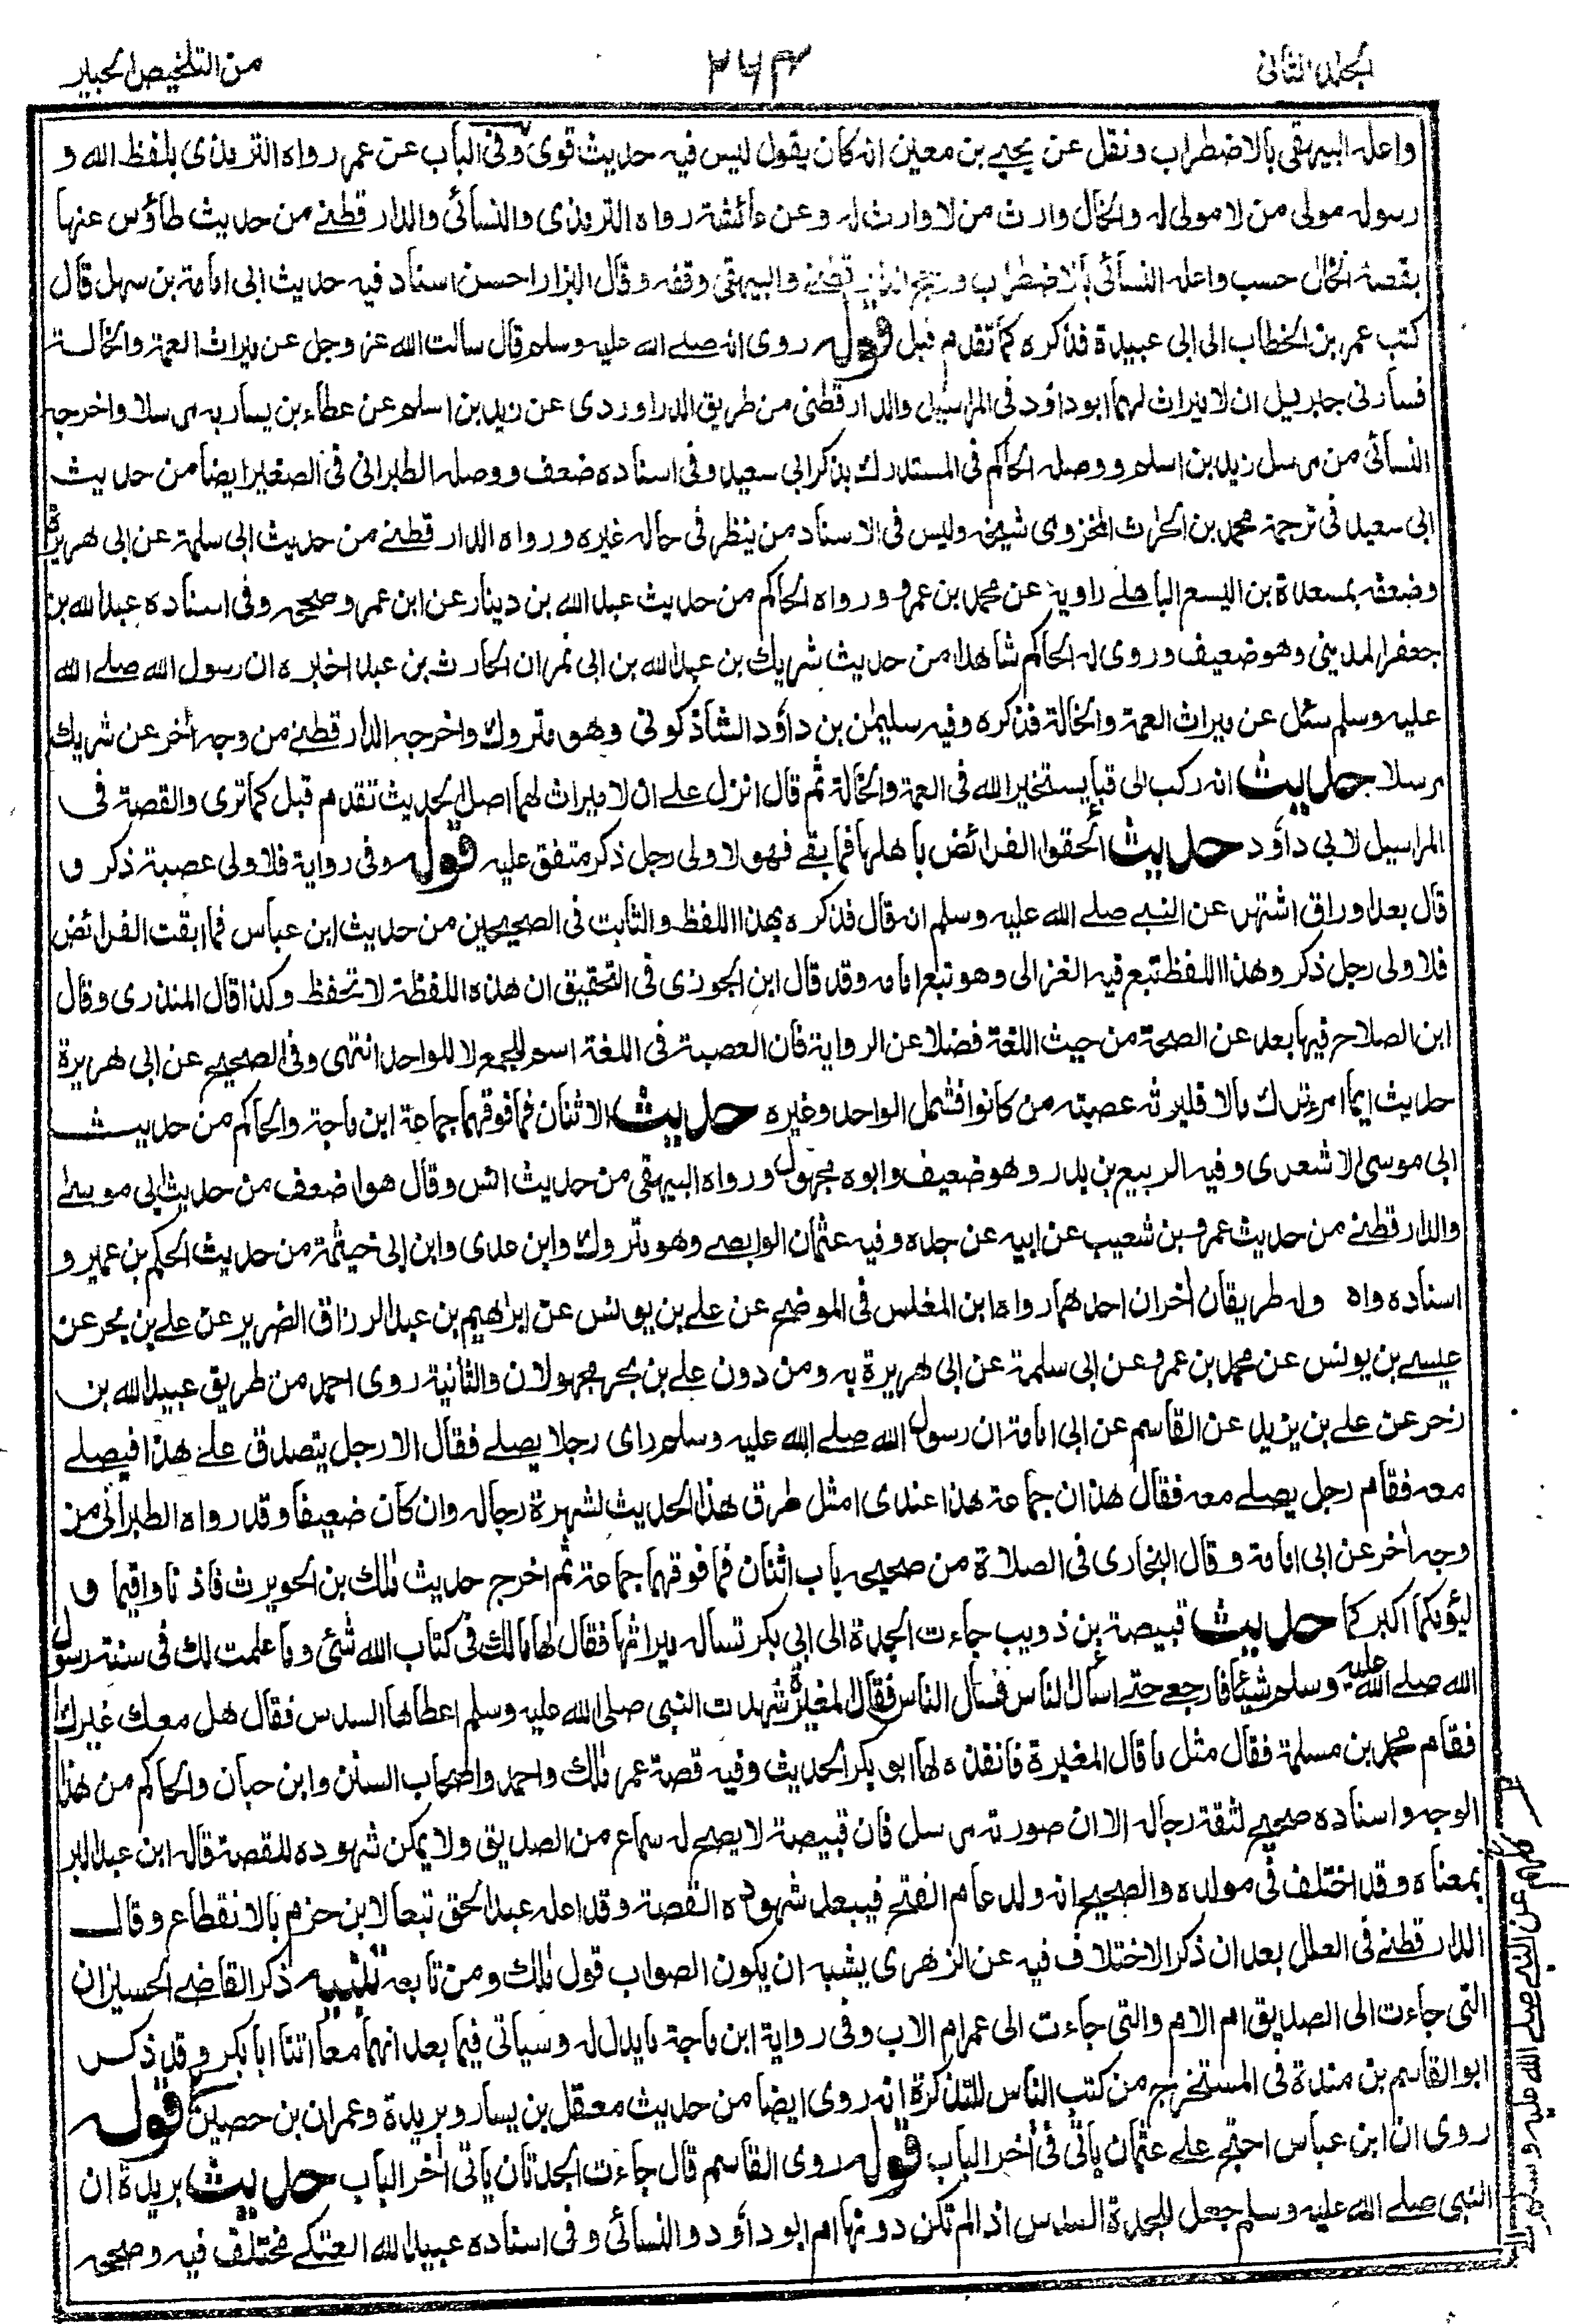 الجلد الثانی
٢٦٣
من التلخیص الحبیر
واعله البیهقی بالاضطراب ونقل عن یحیے بن معین انه کان یقول لیس فیه حدیث قوی وفی الباب عن عمر رواه الترمذی بلفظ الله و
رسوله مولی من لا مولی له والخال وارث من لا وارث له وعن عائشة رواه الترمذی والنسائی والدارقطنے من حدیث طاؤس عنها
بقصة الخال حسب واعله النسائی بالاضطراب ورجح الدارقطنے والبیهقی وقفه وقال البزار احسن اسناد فیه حدیث ابی امامة بن سهل قال
کتب عمر بن الخطاب الی ابی عبیدة فذکره کما تقدم قبل قوله روی انه صلے الله علیه وسلم قال سالت الله عز وجل عن میراث العمة والخالة
فسارنی جابریل ان لا میراث لهما ابو داؤد فی المراسیل والدارقطنی من طریق الدراوردی عن زید بن اسلم عن عطاء بن یسار به مرسلا واخرجه
النسائی من مرسل زید بن اسلم ووصله الحاکم فی المستدرك بذکر ابی سعید وفی اسناده ضعف ووصله الطبرانی فی الصغیر ایضا من حدیث
ابی سعید فی ترجمة محمد بن الحرث المخزومی شیخه ولیس فی الاسناد من ینظر فی حاله غیره ورواه الدارقطنے من حدیث ابی سلمة عن ابی هریرة
وضعفه بمسعدة بن الیسع الباهلے راویه عن محمد بن عمرو ورواه الحاکم من حدیث عبد الله بن دینار عن ابن عمر وصححه وفی اسناده عبد الله بن
جعفر المدینی وهو ضعیف وروی له الحاکم شاهدا من حدیث شریك بن عبد الله بن ابی نمر ان الحارث بن عبد اخبره ان رسول الله صلے الله
علیه وسلم سئل عن میراث العمة والخالة فذکره وفیه سلیمٰن بن داؤد الشاذکونی وهو متروك واخرجه الدارقطنے من وجه اٰخر عن شریك
مرسلا حدیث انه رکب الی قبا یستخیر الله فی العمة والخالة ثم قال انزل علے ان لا میراث لهما اصل الحدیث تقدم قبل کما تری والقصة فی
المراسیل لابی داؤد حدیث ألحقوا الفرائض باهلها فما بقے فهو لاولی رجل ذکر متفق علیه قوله وفی روایة فلاولی عصبة ذکر و
قال بعد اوراق اشتهر عن النبے صلے الله علیه وسلم انه قال فذکره بهذا اللفظ والثابت فی الصحیحین من حدیث ابن عباس فما ابقت الفرائض
فلاولی رجل ذکر وهذا اللفظ تبع فیه الغزالی وهو تبع امامه وقد قال ابن الجوزی فی التحقیق ان هذه اللفظة لا تحفظ وکذا قال المنذری وقال
ابن الصلاح فیها بعد عن الصحة من حیث اللغة فضلا عن الروایة فان العصبة فی اللغة اسم للجمع لا للواحد انتهی وفی الصحیح عن ابی هریرة
حدیث ایما امرء ترك مالا فلیرثه عصبته من کانوا فشمل الواحد وغیره حدیث الاثنان فما فوقهما جماعة ابن ماجة والحاکم من حدیث
ابی موسی الاشعری وفیه الربیع بن بدر وهو ضعیف وابوه مجهول ورواه البیهقی من حدیث انس وقال هو اضعف من حدیث ابی موسے
والدارقطنے من حدیث عمرو بن شعیب عن ابیه عن جده وفیه عثمان الوابصے وهو متروك وابن عدی وابن ابی خیثمة من حدیث الحکم بن عمیر و
اسناده واه وله طریقان اٰخران احدهما رواه ابن المغلس فی الموضح عن علے بن یونس عن ابرٰهیم بن عبد الرزاق الضریر عن علے بن بحر عن
عیسے بن یونس عن محمد بن عمرو عن ابی سلمة عن ابی هریرة به ومن دون علے بن بحر مجهولان والثانیة روی احمد من طریق عبید الله بن
زحر عن علے بن یزید عن القاسم عن ابی امامة ان رسول الله صلے الله علیه وسلم رای رجلا یصلے فقال الا رجل یتصدق علے هذا فیصلے
معه فقام رجل یصلے معه فقال هذان جماعة هذا عندی امثل طرق هذا الحدیث لشهرة رجاله وان کان ضعیفا وقد رواه الطبرانی من
وجه اٰخر عن ابی امامة وقال البخاری فی الصلاة من صحیحه باب اثنان فما فوقهما جماعة ثم اخرج حدیث مٰلك بن الحویرث فاذنا واقیما و
لیؤمکما اکبرکما حدیث قبیصة بن ذویب جاءت الجدة الی ابی بکر تساله میراثها فقال لها مالك فی کتاب الله شئی وما علمت لك فی سنة رسول
الله صلے الله علیه وسلم شیئا فارجعے حتے اسأل الناس فسأل الناس فقال المغیرة شهدت النبی صلی الله علیه وسلم اعطاها السدس فقال هل معك غیرك
فقام محمد بن مسلمة فقال مثل ما قال المغیرة فانفذه لها ابو بکر الحدیث وفیه قصة عمر مٰلك واحمد واصحاب السنن وابن حبان والحاکم من هذا
الوجه واسناده صحیح لثقة رجاله الا ان صورته مرسل فان قبیصة لا یصح له سماع من الصدیق ولا یمکن شهوده للقصة قاله ابن عبد البر
بمعناه وقد اختلف فی مولده والصحیح انه ولد عام الفتح فیبعد شهوده القصة وقد اعله عبد الحق تبعا لابن حزم بالانقطاع وقال
الدارقطنے فی العلل بعد ان ذکر الاختلاف فیه عن الزهری یشبه ان یکون الصواب قول مٰلك ومن تابعه تنبیه ذکر القاضے الحسین ان
التی جاءت الی الصدیق ام الام والتی جاءت الی عمر ام الاب وفی روایة ابن ماجة ما یدل له وسیاتی فیما بعد انهما معا اتتا ابا بکر وقد ذکر
ابو القاسم بن مندة فی المستخرج من کتب الناس للتذکرة انه روی ایضا من حدیث معقل بن یسار وبریدة وعمران بن حصین قوله
روی ان ابن عباس احتج علے عثمان یأتی فی اٰخر الباب قوله روی القاسم قال جاءت الجدتان یاتی اٰخر الباب حدیث بریدة ان
النبی صلے الله علیه وسلم جعل للجدة السدس اذا لم تکن دونها ام ابو داؤد والنسائی وفی اسناده عبید الله العتکے مختلف فیه وصححه
عن النبے صلے الله علیه وسلم